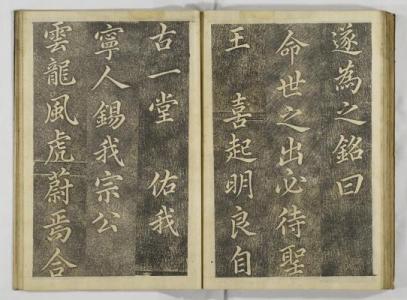 遂為之銘曰
命世之出必待聖
王　喜起明良自
古一堂　佑我
寧人錫我宗公
雲龍風虎蔚焉合